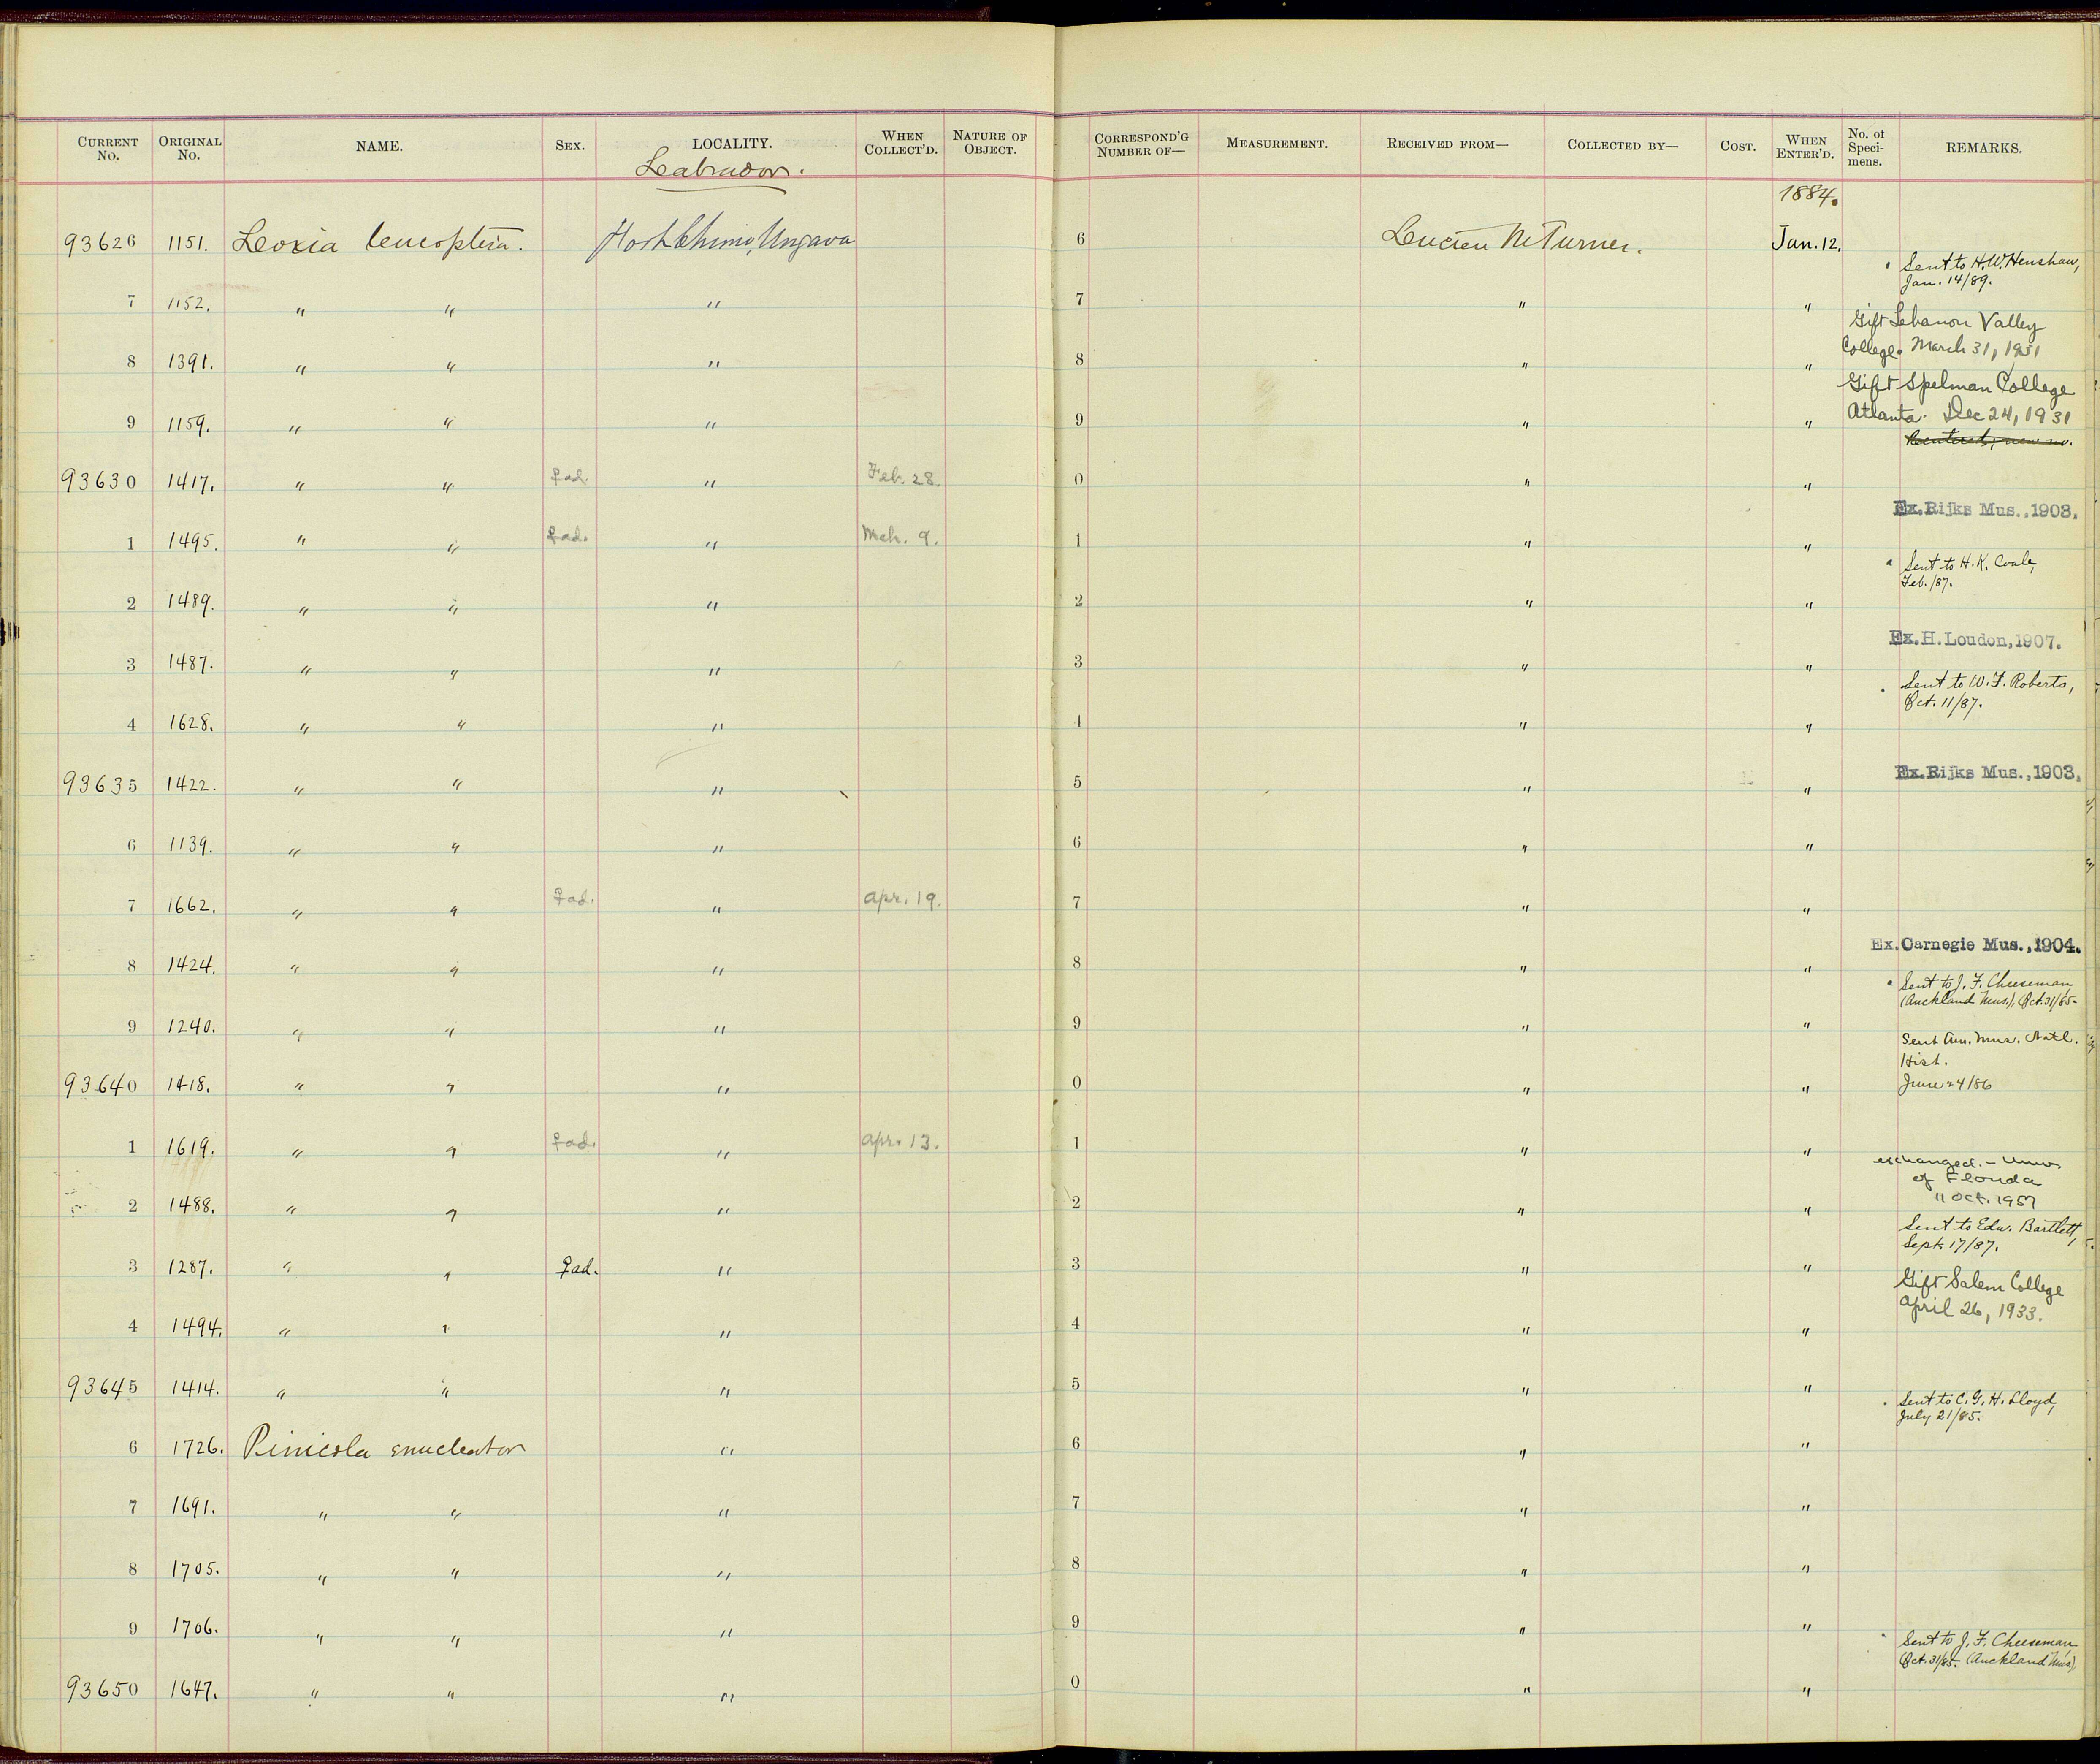 CURRENT No. ORIGINAL No. NAME. SEX. LOCALITY. WHEN COLLECT'D. NATURE OF OBJECT. CORRESPOND'G NUMBER OF— MEASUREMENT. RECEIVED FROM— COLLECTED BY— COST. WHEN ENTER'D. No. of Specimens. REMARKS.
Labrador.
1884.
93626 1151. Loxia leucoptera. Fort Chimo, Ungava 6 Lucien M Turner. Jan. 12.
Sent to H. W. Henshaw,
Jan. 14/89.
7 1152. " " " 7 " "
Gift Lebanon Valley
College. March 31, 1931
8 1391. " " " 8 " "
Gift Spelman College
Atlanta. Dec 24, 1931
9 1159. " " " 9 " "
Reentered; new no.
93630 1417. " " ♀ad. " Feb. 28. 0 " "
Ex. Rijks Mus., 1903.
1 1495. " " ♀ad. " Mch. 9. 1 " "
Sent to H. K. Coale,
Feb. /87.
2 1489. " " " 2 " "
Ex. H. Loudon, 1907.
3 1487. " " " 3 " "
Sent to W. F. Roberts,
Oct. 11/87.
4 1628. " " " 4 " "
Ex. Rijks Mus., 1903.
93635 1422. " " " 5 " "
6 1139. " " " 6 " "
7 1662. " " ♀ad. " Apr. 19. 7 " "
Ex. Carnegie Mus., 1904.
8 1424. " " " 8 " "
Sent to J. F. Cheeseman
(Auckland Mus.), Oct. 31/85.
9 1240. " " " 9 " "
Sent Am. Mus. Natl.
Hist.
June 24/86
93640 1418. " " " 0 " "
1 1619. " " ♀ad. " Apr. 13. 1 " "
exchanged. - Univ.
of Florida
11 Oct. 1957
2 1488. " " " 2 " "
Sent to Edw. Bartlett,
Sept. 17/87.
3 1287. " " ♀ad. " 3 " "
Gift Salem College
April 26, 1933.
4 1494. " " " 4 " "
93645 1414. " " " 5 " "
Sent to C. G. H. Lloyd,
July 21/85.
6 1726. Pinicola enucleator " 6 " "
7 1691. " " " 7 " "
8 1705. " " " 8 " "
9 1706. " " " 9 " "
Sent to J. F. Cheeseman
Oct. 31/85. (Auckland Mus.)
93650 1647. " " " 0 " "